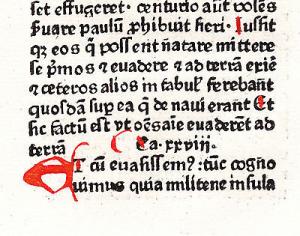 set effugeret· centurio aūt volēs
ẜuare paulū ꝓhibuit fieri· Iussit
qꝫ eos q̄ possent natare mittere
se pͥmos ⁊ euadere ⁊ ad terrā exiē
⁊ ceteros alios in tabul' ferebant
quosdā sup ea q̄ de naui erant Et
sic factū est vt oēs aīe euaderēt ad
terrā Ca· xxviij·
ET cū euasissemꝰ: tūc cogno
uimus quia militene insula